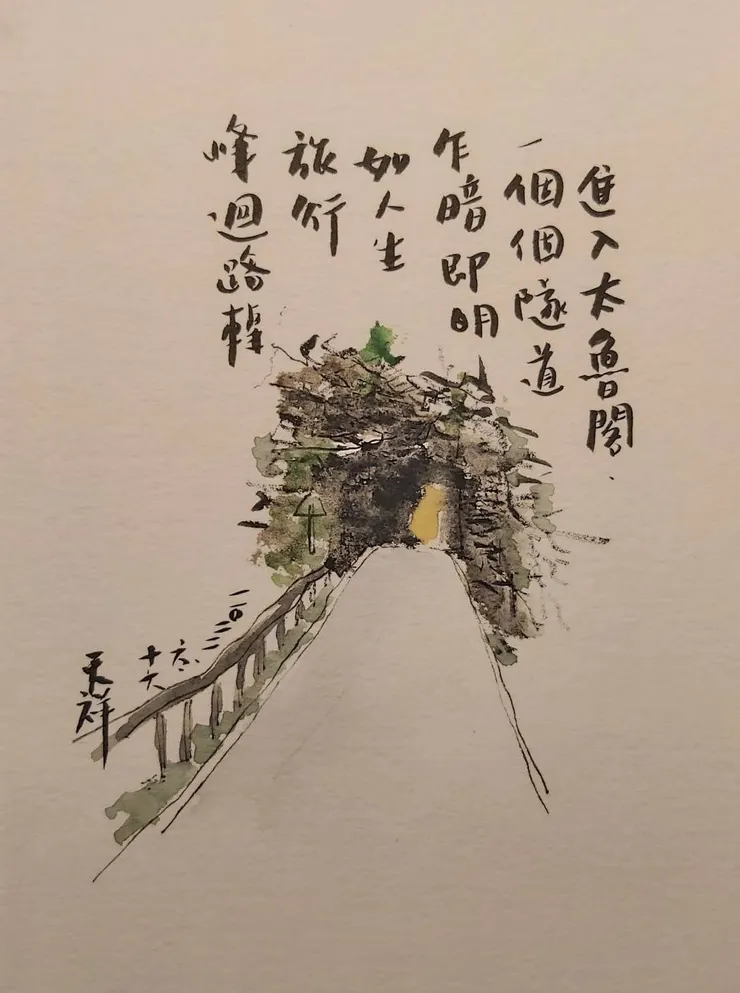 進入太魯閣、
一個個隧道
乍暗即明
如人生
旅行
峰迴路轉
二〇二二
六、
十六
天祥